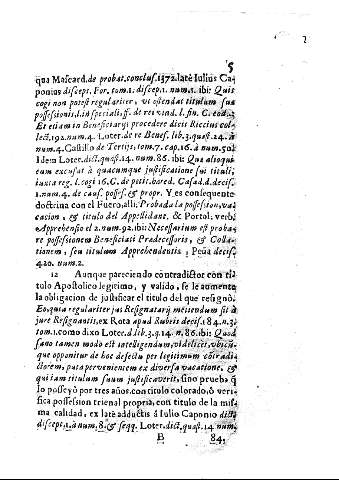 5
qua Mascard. de probat. conclus. 1372. latè Iulius Ca-
ponius discept. For. tom. 1. discep. 1. num. 1. ibi: Quis
cogi non potest regulariter, vt ostendat titulum suæ
possessionis, l. in speciali, ff. de rei vind. l. fin. C. eod. 3
Et etiam in Beneficiarijs procedere dicit Riccius col-
lect. 192. num. 4. Loter. de re Benef. lib. 3. quæst. 14. à
num. 4. Castillo de Tertijs, tom. 7. cap. 16. à num. 50.
Idem Loter. dict. quæst. 14. num. 86. ibi: Qua alioqui
eum excusat à quacumque justificatione sui tituli,
iuxta reg. l. cogi 16. C. de petit. hæred. Casad. d. decis.
1. num. 4. de caus. posses. & propr. Y es consequente
doctrina con el Fuero, alli: Probada la possession, va-
cacion, & titulo del Appellidant, & Portol. verb.
Apprehensio el 2. num. 92. ibi: Necessarium est proba-
re possessionem Beneficiati Predecessoris, & Colla-
tionem, seu titulum Apprehendentis; Peña decis.
420. num. 2.
12 Aunque pareciendo contradictor con ti-
tulo Apostolico legitimo, y valido, se le aumenta
la obligacion de justificar el titulo del que resignò.
Eo, quia regulariter jus Resignatarij metiendum sit à
jure Resignantis, ex Rota apud Rubeis decis. 184. n. 3.
tom. 1. como dixo Loter. d. lib. 3. q. 14. n. 86. ibi: Quod
sano tamen modo est intelligendum, videlicet, vbicũ-
que opponitur de hoc defectu per legitimum côtradi-
ctorem, puta provenientem ex diversa vacatione, &
qui iam titulum suum justificaverit, sino prueba q̃
lo posseyò por tres años, con titulo colorado, ò veri-
fica possession trienal propria, con titulo de la mis-
ma calidad, ex late adductis à Iulio Caponio dicta
discept. 1. à num. 8. & seqq. Loter. dict. quæst. 14. num.
B 84.